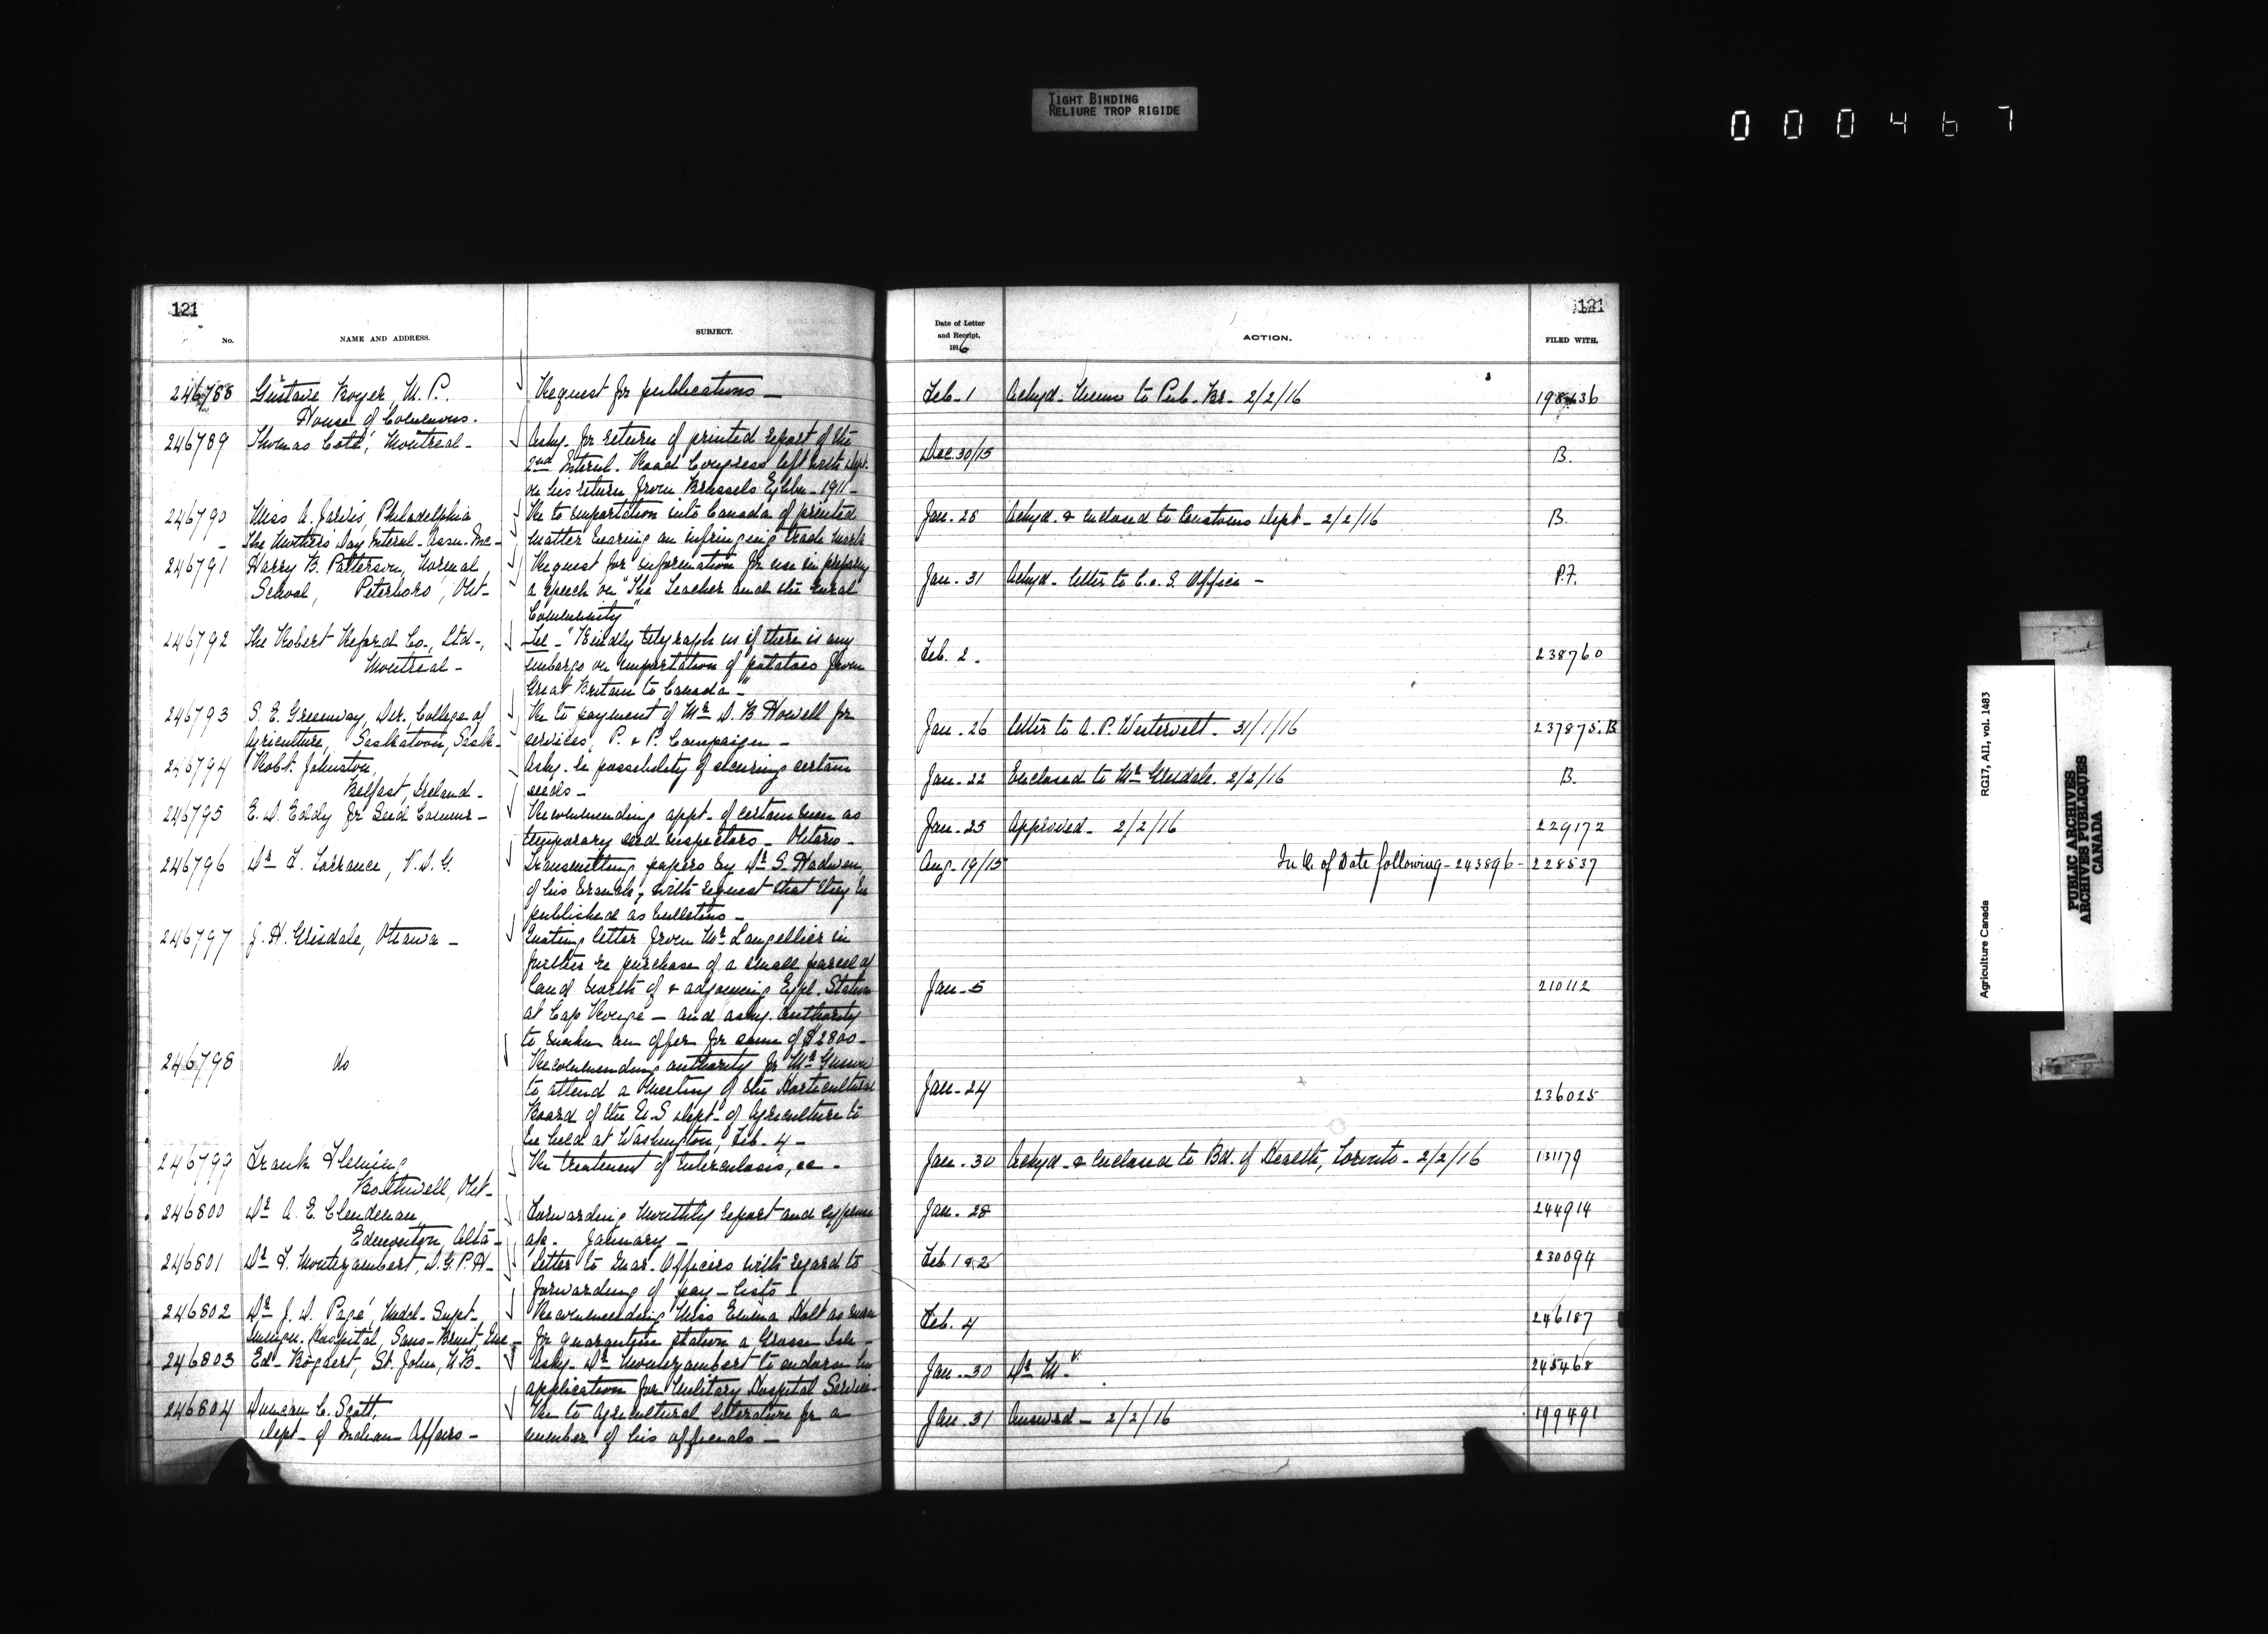 TIGHT BINDING
RELIURE TROP RIGIDE
000467
121
No.
NAME AND ADDRESS.
SUBJECT.
246788 Gustave Boyer, M.P. Request for publications —
House of Commons.
246789 Thomas Coté, Montreal - Askg. for return of printed report of the
2nd Internl. Road Congress left with Dept.
on his return from Brussels Exhbn - 1911 -
246790 Miss A. Jarvis, Philadelphia Re to importation into Canada of printed
The Mothers Day Internl. Assn. Inc - matter bearing an infringing trade mark
246791 Harry B. Patterson, Normal Request for information for use in preparing
School, Peterboro', Ont - a speech on "The Teacher and the Rural
Community"
246792 The Robert Reford Co., Ltd -, Tel - "Kindly telegraph us if there is any
Montreal - embargo on importation of potatoes from
Great Britain to Canada -"
246793 S. E. Greenway, Dir., College of Re to payment of Mr D. B Howell for
Agriculture, Saskatoon, Sask - services, P. & P. Campaign -
246794 Robt. Johnston, Askg. re possibility of securing certain
Belfast, Ireland - seeds -
246795 E. D. Eddy for Seed Commr - Recommending appt. of certain men as
temporary seed inspectors - Ontario -
246796 Dr F. Torrance, V.D.G. Transmitting papers by Dr S. Hadwen
of his branch, with request that they be
published as bulletins -
246797 J. H. Grisdale, Ottawa - Quoting letter from Mr Langellier in
further re purchase of a small parcel of
land north of & adjoining Exptl. Station
at Cap Rouge - and askg. authority
to make an offer for sum of $2800 -
246798 do Recommending authority for Mr Gussow
to attend a Meeting of the Horticultural
Board of the U.S Dept. of Agriculture to
be held at Washington, Feb. 4 -
246799 Frank Fleming Re treatment of tuberculosis, ec -
Bothwell, Ont -
246800 Dr A. E. Clendenan, Forwarding Monthly report and expense
Edmonton, Alta - a/c. January -
246801 Dr F. Montizambert, D.G.P.H - Letter to Quar. Officers with regard to
forwarding of pay - lists -
246802 Dr J. D. Pagé, Medcl. Supt. Recommending Miss Emma Holt as nurse
Immign. Hospital, Sans-Bruit, Que - for quarantine station a Grosse Isle -
246803 Ed - Bogaert, St. John, N.B. Askg - Dr Montizambert to endorse his
application for Military Hospital Service -
246804 Duncan C. Scott, Re to Agricultural literature for a
Dept - of Indian Affairs - member of his officials -
121
Date of Letter
and Receipt.
1916
ACTION.
FILED WITH.
Feb - 1 Ackgd. Memo to Pub. Br - 2/2/16
Dec. 30/15 B.
Jan. 28 Ackgd. & enclosed to Customs Dept - 2/2/16 B.
Jan. 31 Ackgd - letter to C. o. S. Office - P.F.
Feb. 2. 238760
Jan. 26 Letter to A. P. Westervelt - 31/1/16 237875.B
Jan. 22 Enclosed to Mr Grisdale. 2/2/16 B.
Jan. 25 Approved - 2/2/16 229172
Aug. 19/15 In U. of Date following - 243896 - 228537
Jan - 5 210112
Jan - 24 236025
Jan - 30 Ackgd - & enclosed to Bd. of Health, Toronto - 2/2/16 131179
Jan. 28 244914
Feb. 1 & 2 230094
Feb. 4 246187
Jan. 30 Dr M. 245468
Jan. 31 Answered - 2/2/16 199491
Agriculture Canada RG17, A11, vol. 1483
PUBLIC ARCHIVES
ARCHIVES PUBLIQUES
CANADA